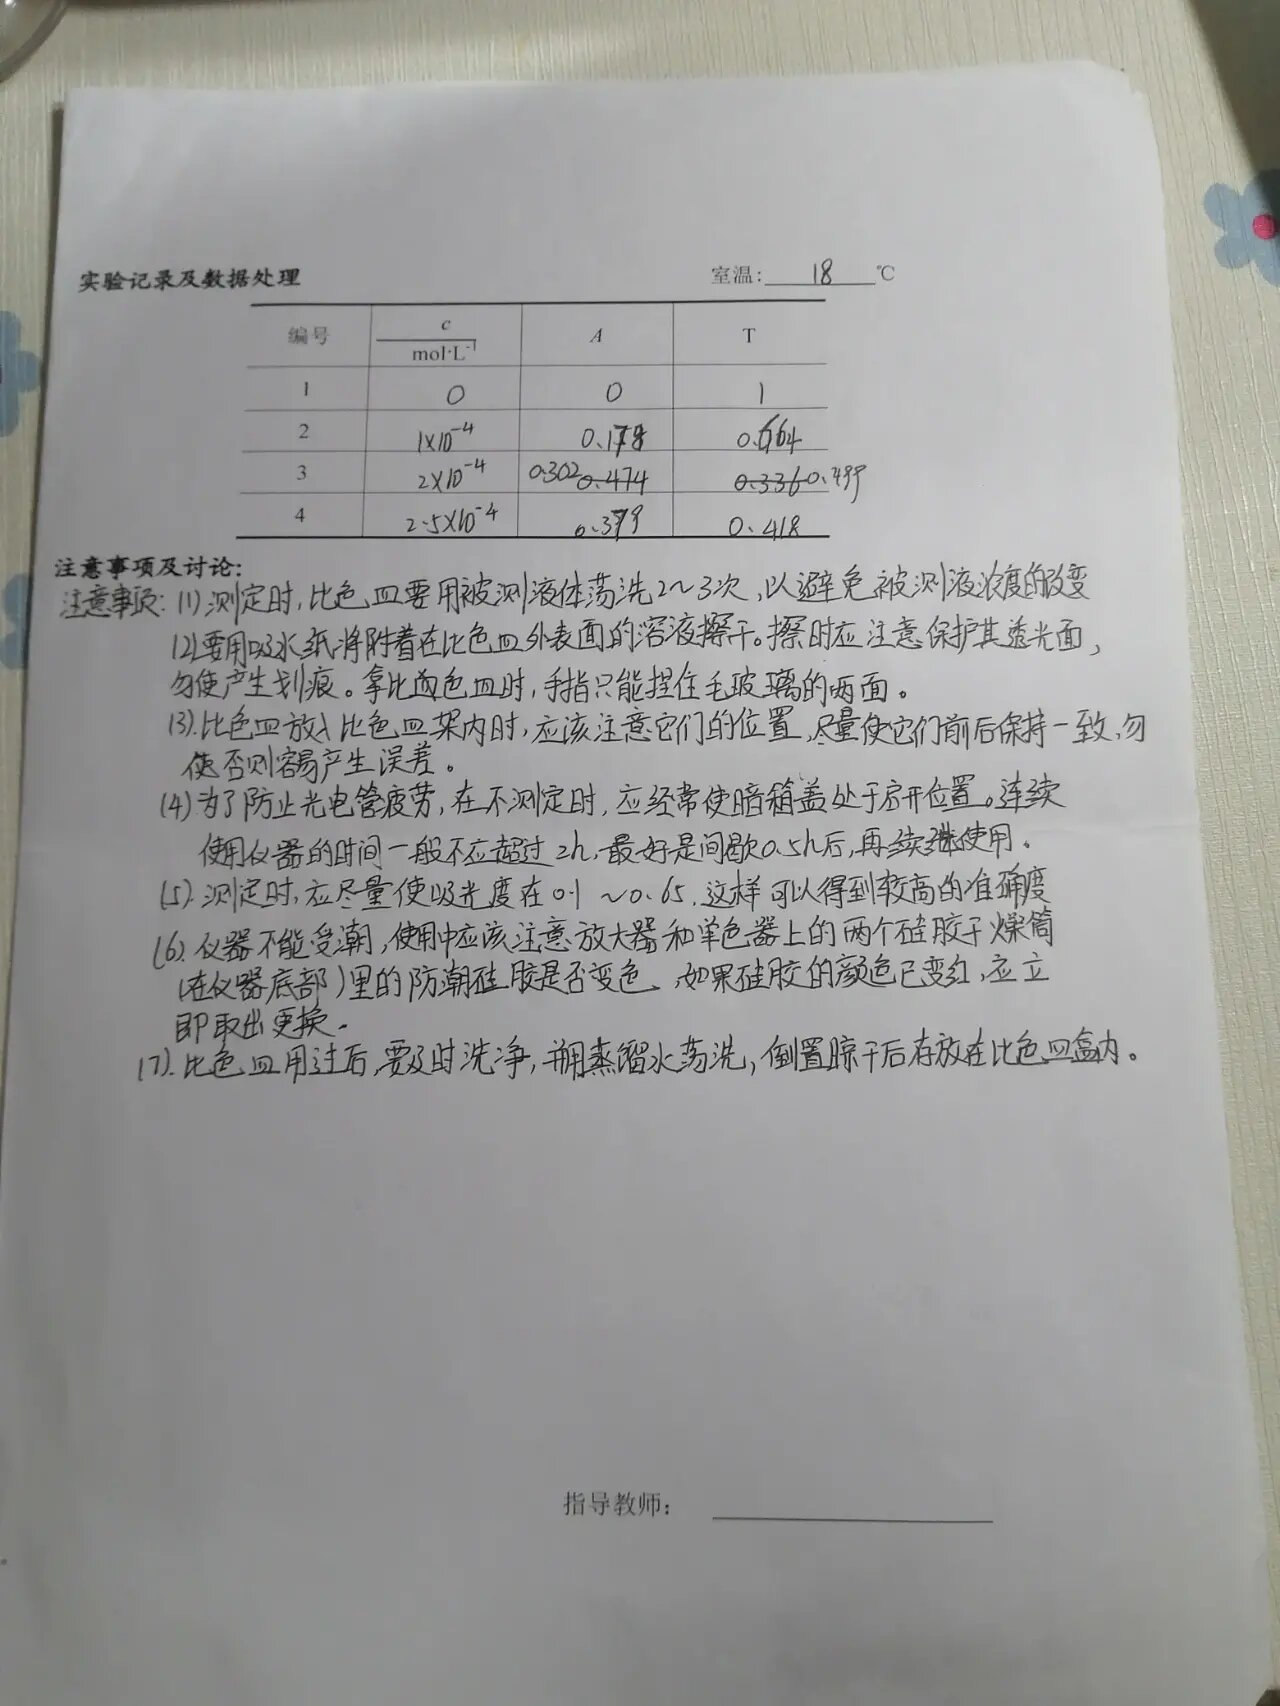 实验记录及数据处理 室温: 18 ℃
编号 c/mol·L⁻¹ A T
1 0 0 1
2 1×10⁻⁴ 0.178 0.664
3 2×10⁻⁴ 0.302 0.474 0.336 0.499
4 2.5×10⁻⁴ 0.379 0.418
注意事项及讨论:
注意事项: (1) 测定时, 比色皿要用被测液体荡洗2~3次, 以避免被测液浓度的改变
(2)要用吸水纸将附着在比色皿外表面的溶液擦干。擦时应注意保护其透光面,
勿使产生划痕。拿比色皿时, 手指只能捏住毛玻璃的两面。
(3). 比色皿放入比色皿架内时, 应该注意它们的位置, 尽量使它们前后保持一致, 勿
使否则容易产生误差。
(4) 为了防止光电管疲劳, 在不测定时, 应经常使暗箱盖处于启开位置。连续
使用仪器的时间一般不应超过2h, 最好是间歇0.5h后, 再续继使用.
(5). 测定时, 应尽量使吸光度在0.1~0.65, 这样可以得到较高的准确度
(6). 仪器不能受潮, 使用中应该注意放大器和单色器上的两个硅胶干燥筒
(在仪器底部)里的防潮硅胶是否变色, 如果硅胶的颜色已变红, 应立
即取出更换.
(7). 比色皿用过后, 要及时洗净, 并用蒸馏水荡洗, 倒置晾干后存放在比色皿盒内.
指导教师: